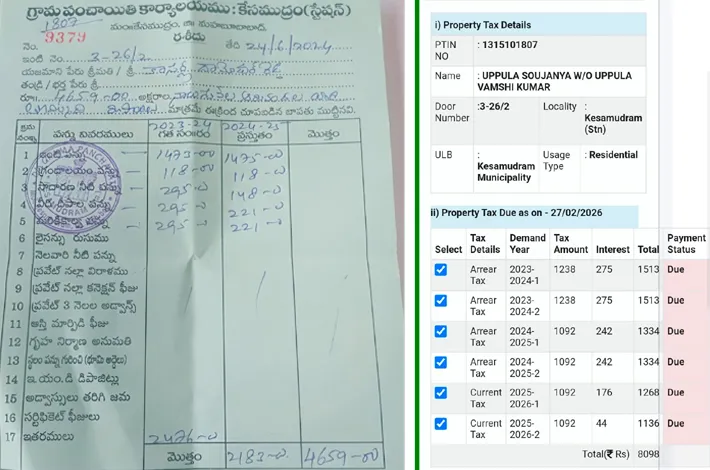 గ్రామ పంచాయితి కార్యాలయము : కేసముద్రం (స్టేషన్)
మం: కేసముద్రం, జిల్లా మహబూబాబాద్.
1807
9379
రశీదు
నెం.
తేది 24/6/2024
ఇంటి నెం. 3-26/2
యజమాని పేరు శ్రీమతి / శ్రీ.
తండ్రి / భర్త పేరు శ్రీ
రూ॥ 4659-00 అక్షరాల
మాత్రమే ఈ క్రింద చూపబడిన జాపతు ముట్టినవి.
క్రమ సంఖ్య పన్ను వివరములు 2023-24 గత సంవత్సర 2024-25 ప్రస్తుతం మొత్తం
1 ఇంటి పన్ను 1473-00 1475-00
2 గ్రంథాలయం పన్ను 118-00 118-0
3 సాధారణ నీటి పన్ను 295-0 148-0
4 వీధి దీపాల పన్ను 295-0 221-0
5 295-0 221-0
6 లైసన్సు రుసుము
7 నెలవారి నీటి పన్ను
8 ప్రైవేట్ నల్లా విరాళము
9 ప్రైవేట్ నల్లా కనెక్షన్ ఫీజు
10 ప్రైవేట్ 3 నెలల అడ్వాన్స్
11 ఆస్తి మార్పిడి ఫీజు
12 గృహ నిర్మాణ అనుమతి
13 స్థలం పన్ను గురించి
14 ఇ.యం.డి డిపాజిట్లు
15 అడ్వాన్సులు తరిగి జమ
16 సర్టిఫికెట్ ఫీజులు
17 ఇతరములు 2476-0
మొత్తం 2183-0 4659-00
i) Property Tax Details
PTIN NO : 1315101807
Name : UPPULA SOUJANYA W/O UPPULA VAMSHI KUMAR
Door Number :3-26/2 Locality : Kesamudram (Stn)
ULB : Kesamudram Municipality Usage Type : Residential
ii) Property Tax Due as on - 27/02/2026
Select Tax Details Demand Year Tax Amount Interest Total Payment Status
Arrear Tax 2023-2024-1 1238 275 1513 Due
Arrear Tax 2023-2024-2 1238 275 1513 Due
Arrear Tax 2024-2025-1 1092 242 1334 Due
Arrear Tax 2024-2025-2 1092 242 1334 Due
Current Tax 2025-2026-1 1092 176 1268 Due
Current Tax 2025-2026-2 1092 44 1136 Due
Total(₹ Rs) 8098